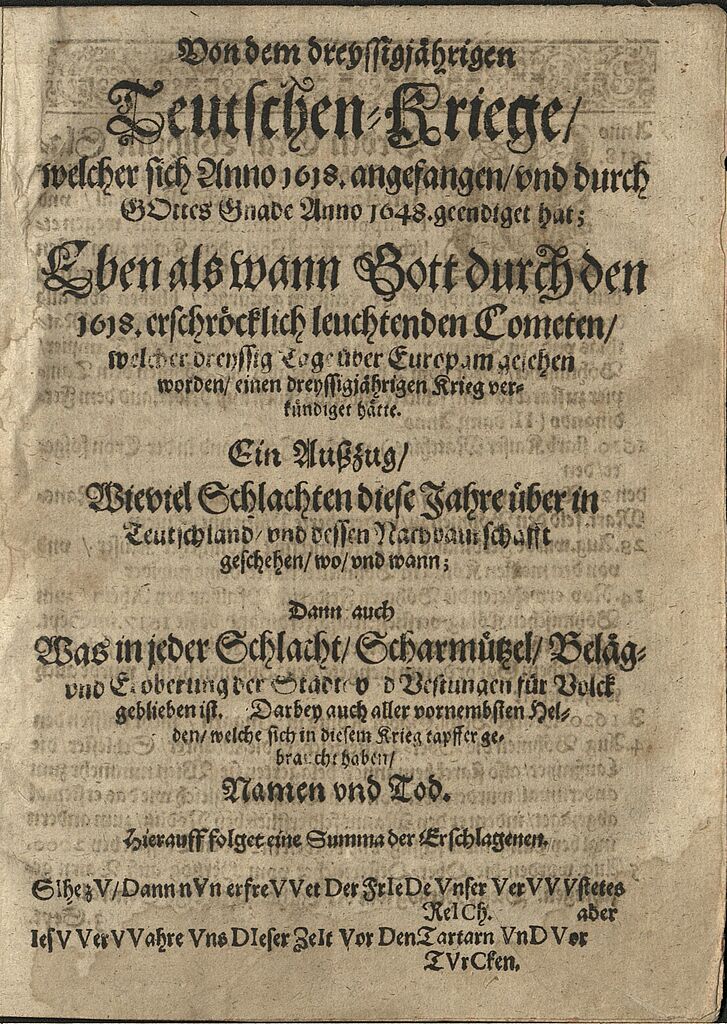 Von dem dreyssigjährigen
Teutschen-Kriege/
welcher sich Anno 1618. angefangen/vnd durch
GOttes Gnade Anno 1648. geendiget hat;
Eben als wann Gott durch den
1618. erschröcklich leuchtenden Cometen/
welcher dreyssig Tage über Europam gesehen
worden/ einen dreyssigjährigen Krieg ver-
kündiget hätte.
Ein Außzug/
Wieviel Schlachten diese Jahre über in
Teutschland/ vnd dessen Nachbaurschafft
geschehen/ wo/ vnd wann;
Dann auch
Was in jeder Schlacht/ Scharmützel/ Beläg-
vnd Eroberung der Städte vnd Vestungen für Volck
geblieben ist. Darbey auch aller vornembsten Hel-
den/ welche sich in diesem Krieg tapffer ge-
braucht haben/
Namen vnd Tod.
Hierauff folget eine Summa der Erschlagenen.
SIhe zV/ Dann nVn erfreVVet Der FrIeDe Vnser VerVVVstetes
ReICh. aber
IesV VerVVahre Vns DIeser ZeIt Vor Den Tartarn VnD Vor
TVrCken.